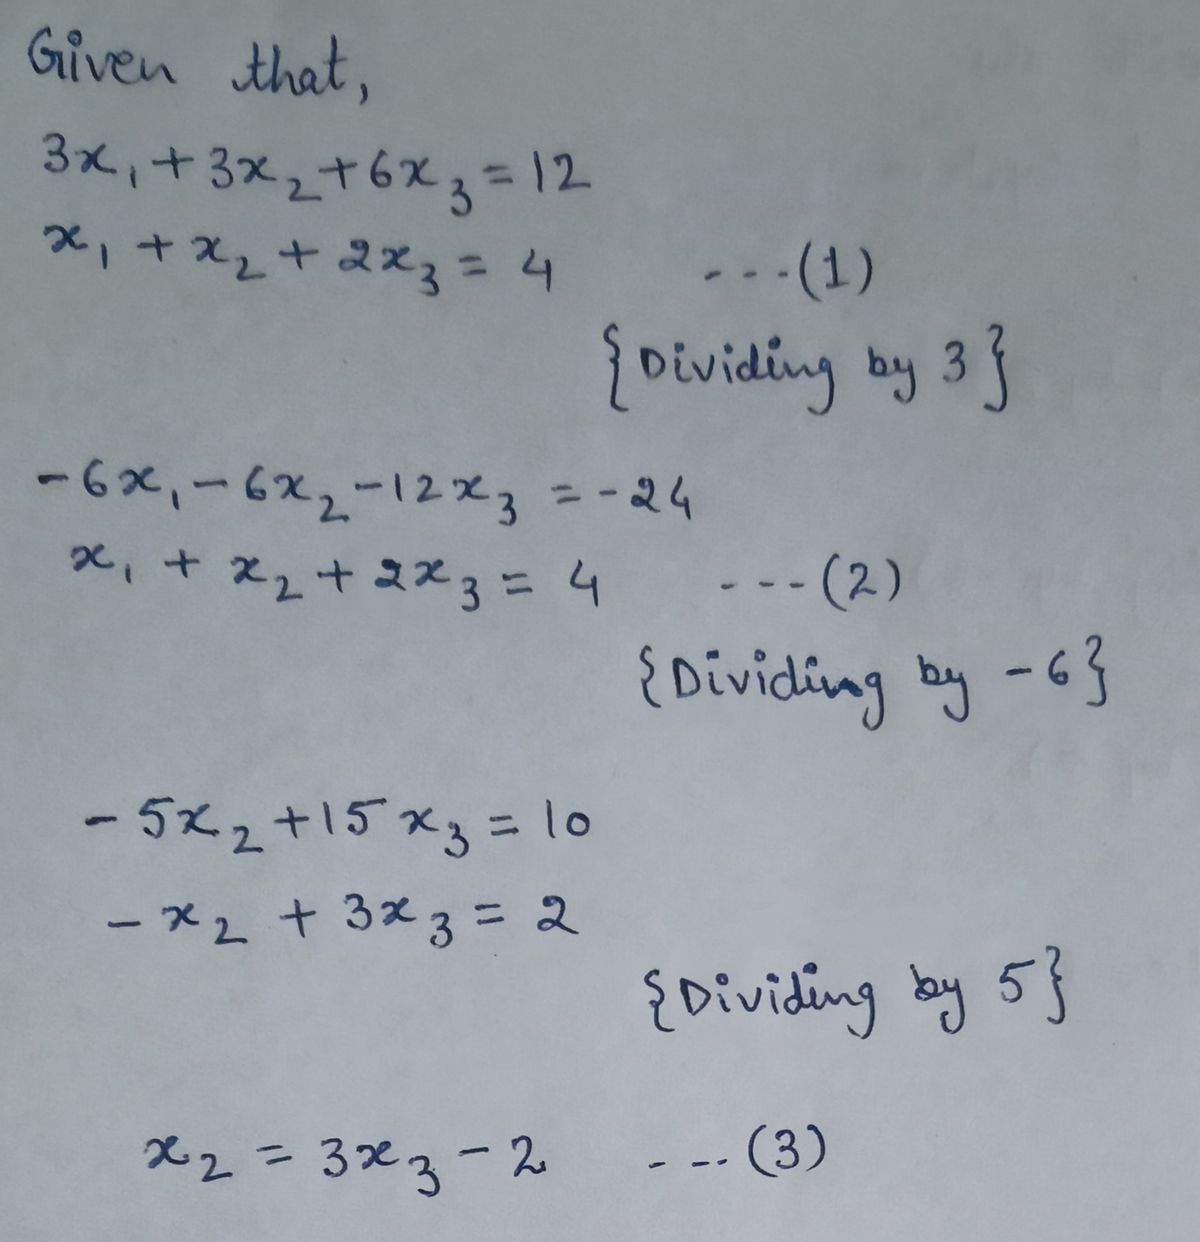 Given that,
3x₁+3x₂+6x₃=12
x₁+x₂+2x₃=4 ---(1)
{Dividing by 3}
-6x₁-6x₂-12x₃=-24
x₁+x₂+2x₃=4 ---(2)
{Dividing by -6}
-5x₂+15x₃=10
-x₂+3x₃=2
{Dividing by 5}
x₂=3x₃-2 ---(3)